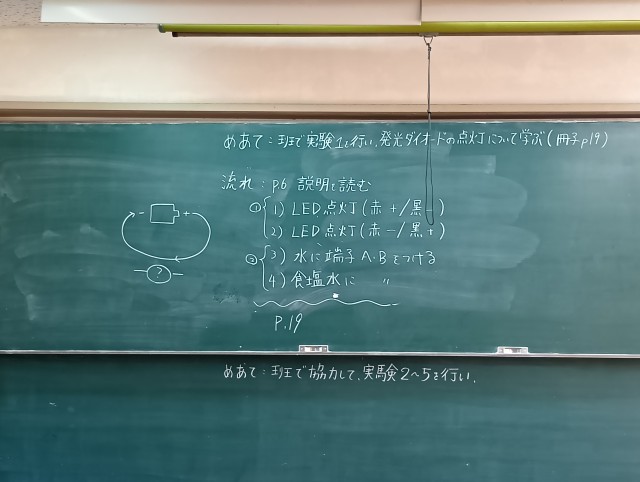 めあて：班で実験1を行い、発光ダイオードの点灯について学ぶ(冊子p19)
流れ：p6 説明を読む
① 1) LED点灯(赤+/黒-)
2) LED点灯(赤-/黒+)
② 3) 水に端子A・Bをつける
4) 食塩水に 〃
- +
?
P.19
めあて：班で協力して、実験2〜5を行い、